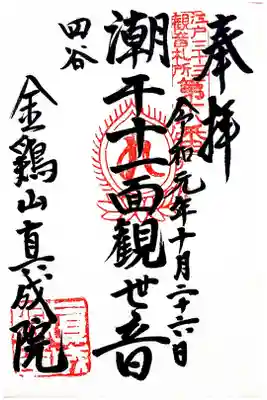 奉拝
江戸三十三
観音札所
令和元年十月二十六日
潮干十一面観世音
四谷
金鶏山真成院